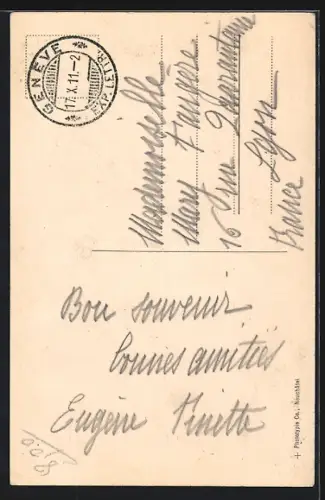 GENÈVE
EXP. LETTR.
17. X. 11.-2
Mademoiselle
Mary Faugère
16 Rue Quarantaine
Lyon
France
Bon souvenir
bonnes amitiés
Eugène Pinette
Phototypie Co., Neuchâtel